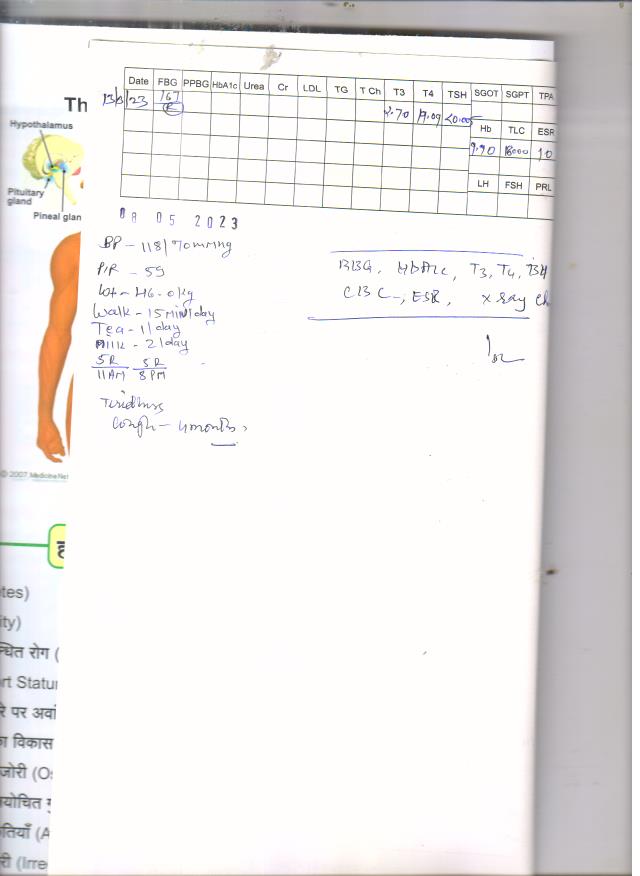 Th
Hypothalamus
Pituitary
gland
Pineal glan
Date FBG PPBG HbA1c Urea Cr LDL TG T Ch T3 T4 TSH SGOT SGPT TPA
23 167 2.70 <0.005
R
Hb TLC ESR
9.90 10
LH FSH PRL
08 05 2023
BP - 118/70 mmHg
P/R - 59
wt - 46.0 kg
Walk - 15 min/day
Tea - 1/day
Milk - 2/day
5R 5R
11AM 8PM
Cough - 4 months
RBG, HbA1c, T3, T4, TSH
CBC, ESR, x ray Ch
© 2007 MedicineNet
tes)
ity)
न्धित रोग (
rt Statur
रे पर अवां
ा विकास
जोरी (Os
योचित
तियाँ (A
री (Irre